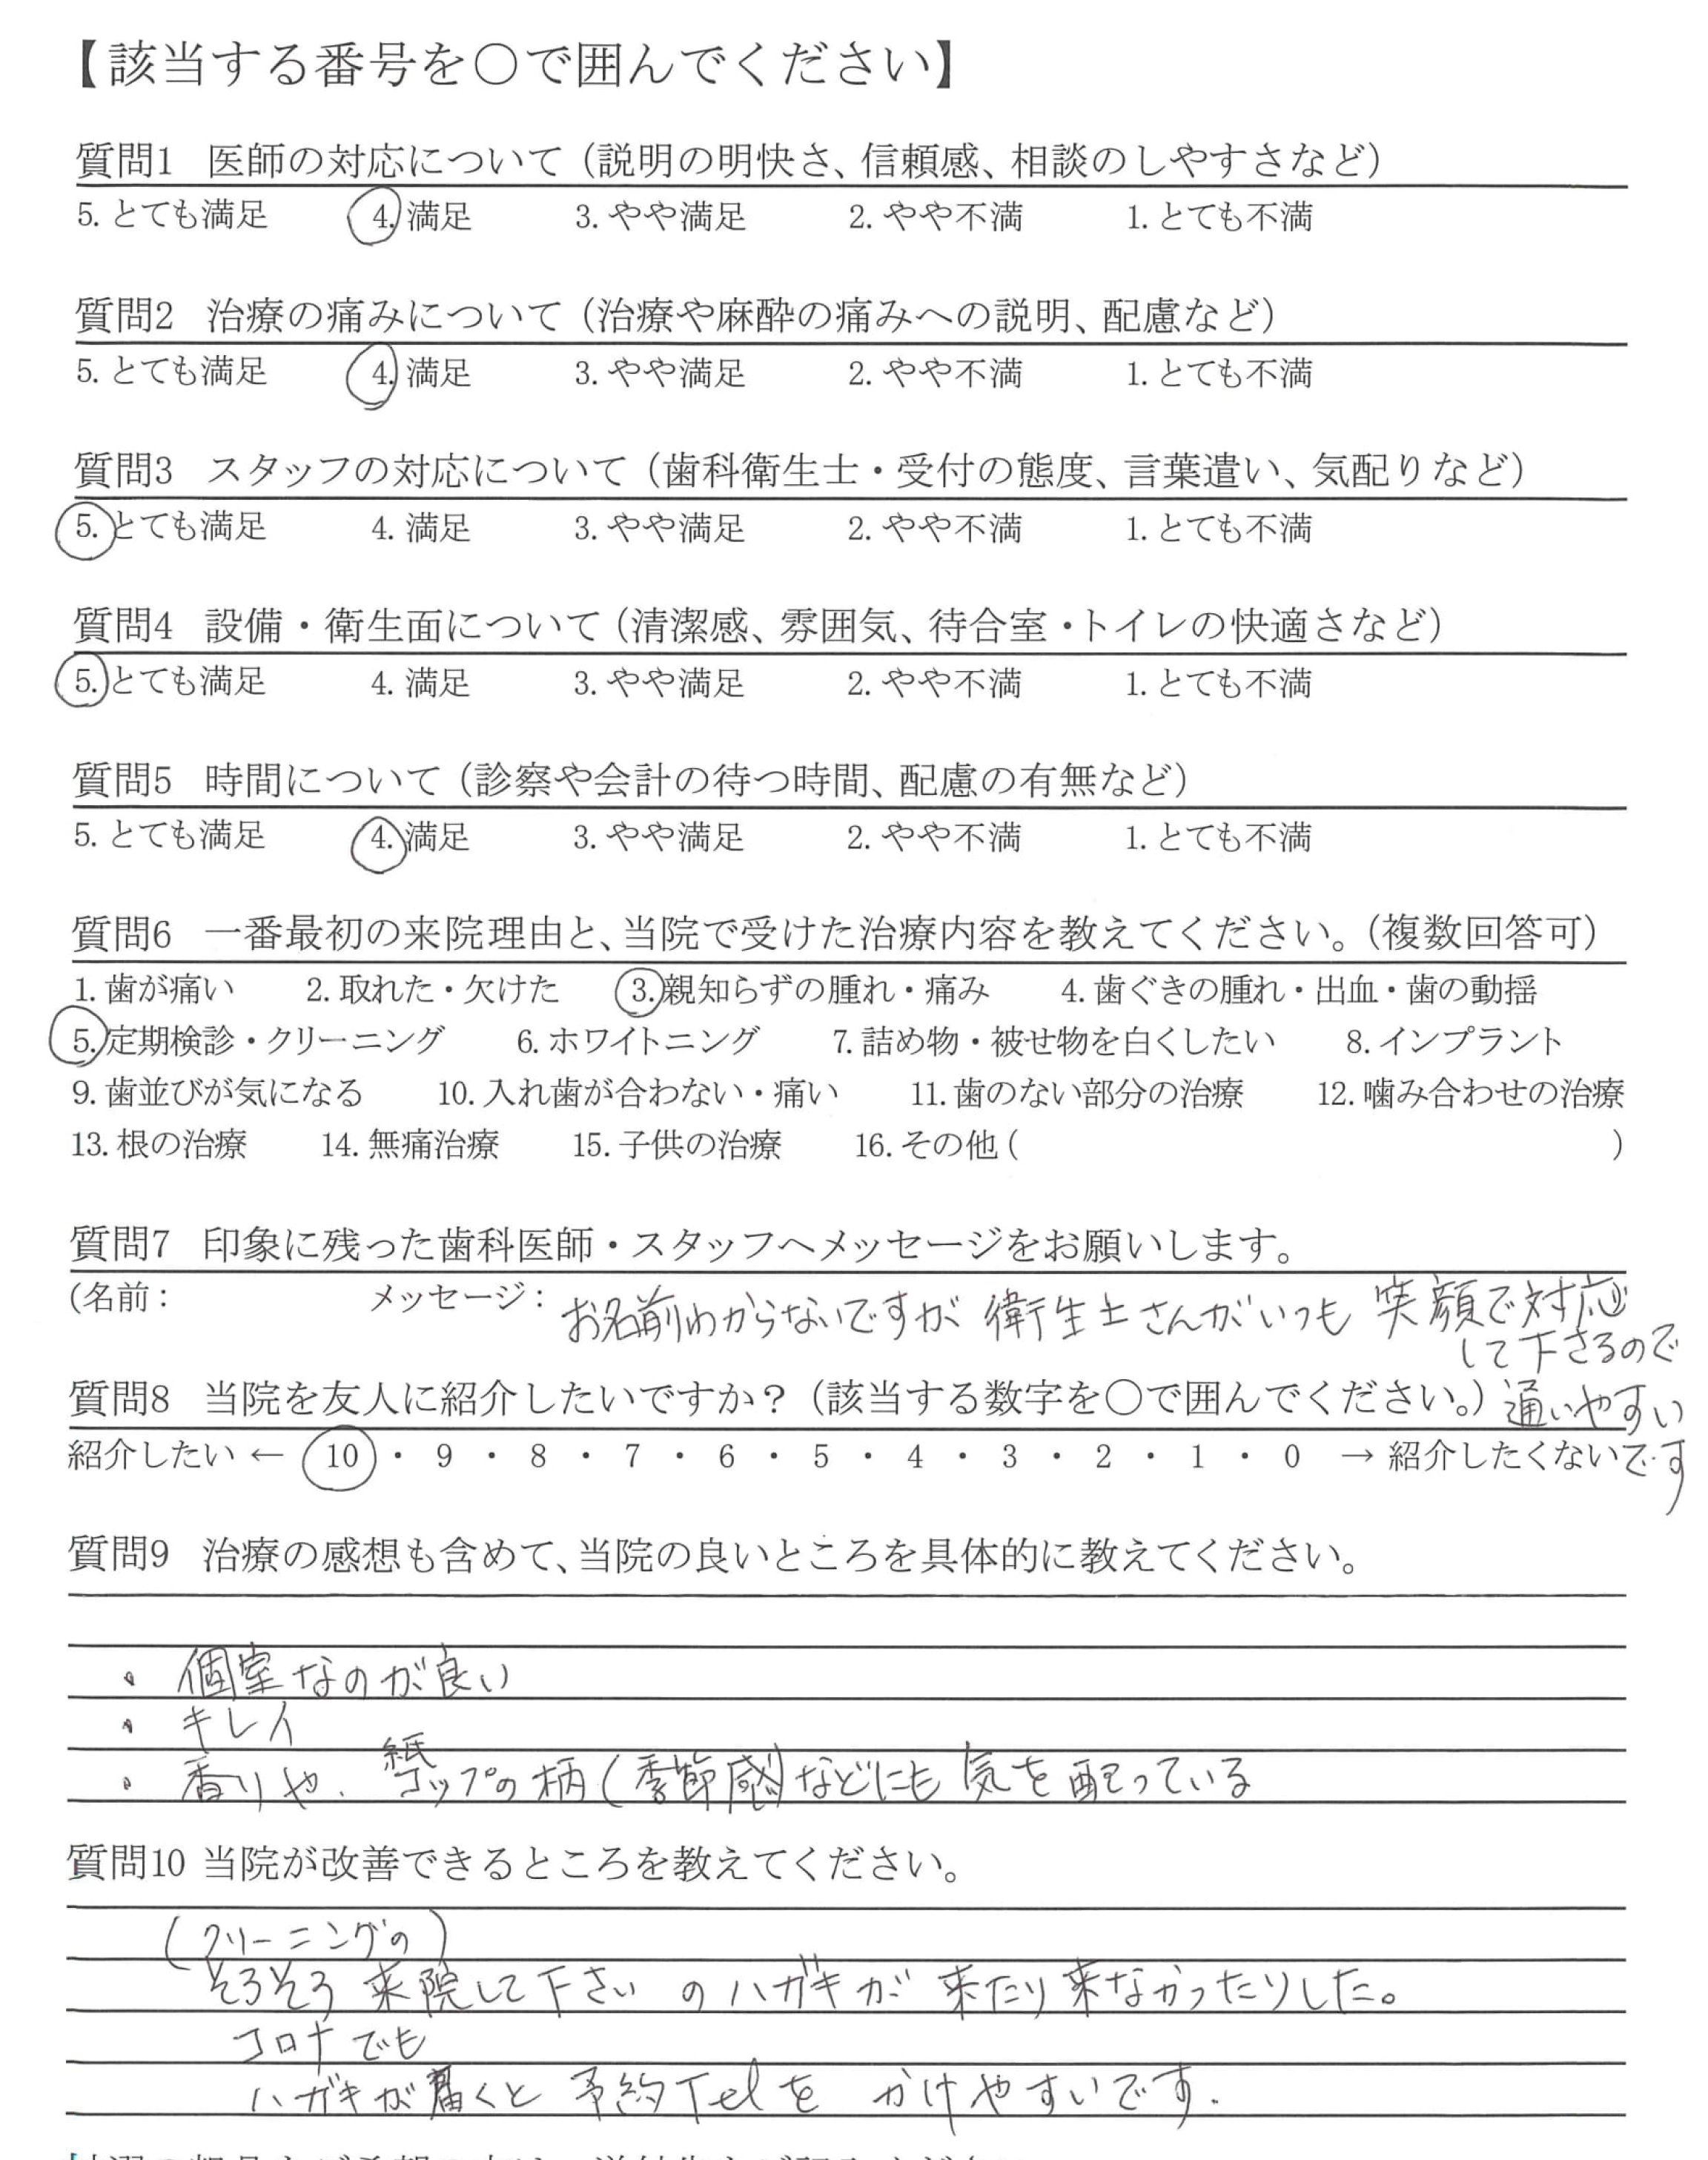 【該当する番号を○で囲んでください】
質問1 医師の対応について（説明の明快さ、信頼感、相談のしやすさなど）
5. とても満足 4. 満足 3. やや満足 2. やや不満 1. とても不満
質問2 治療の痛みについて（治療や麻酔の痛みへの説明、配慮など）
5. とても満足 4. 満足 3. やや満足 2. やや不満 1. とても不満
質問3 スタッフの対応について（歯科衛生士・受付の態度、言葉遣い、気配りなど）
5. とても満足 4. 満足 3. やや満足 2. やや不満 1. とても不満
質問4 設備・衛生面について（清潔感、雰囲気、待合室・トイレの快適さなど）
5. とても満足 4. 満足 3. やや満足 2. やや不満 1. とても不満
質問5 時間について（診察や会計の待つ時間、配慮の有無など）
5. とても満足 4. 満足 3. やや満足 2. やや不満 1. とても不満
質問6 一番最初の来院理由と、当院で受けた治療内容を教えてください。（複数回答可）
1. 歯が痛い 2. 取れた・欠けた 3. 親知らずの腫れ・痛み 4. 歯ぐきの腫れ・出血・歯の動揺
5. 定期検診・クリーニング 6. ホワイトニング 7. 詰め物・被せ物を白くしたい 8. インプラント
9. 歯並びが気になる 10. 入れ歯が合わない・痛い 11. 歯のない部分の治療 12. 噛み合わせの治療
13. 根の治療 14. 無痛治療 15. 子供の治療 16. その他 ( )
質問7 印象に残った歯科医師・スタッフへメッセージをお願いします。
(名前： メッセージ： お名前わからないですが 衛生士さんがいつも 笑顔で対応
して下さるので
通いやすい
です
質問8 当院を友人に紹介したいですか？（該当する数字を○で囲んでください。）
紹介したい ← 10 ・ 9 ・ 8 ・ 7 ・ 6 ・ 5 ・ 4 ・ 3 ・ 2 ・ 1 ・ 0 → 紹介したくない
質問9 治療の感想も含めて、当院の良いところを具体的に教えてください。
・ 個室なのが良い
・ キレイ
・ 香りや、紙コップの柄（季節感）などにも気を配っている
質問10 当院が改善できるところを教えてください。
（クリーニングの）
そろそろ来院して下さい のハガキが 来たり来なかったりした。
コロナでも
ハガキが届くと 予約Telを かけやすいです.